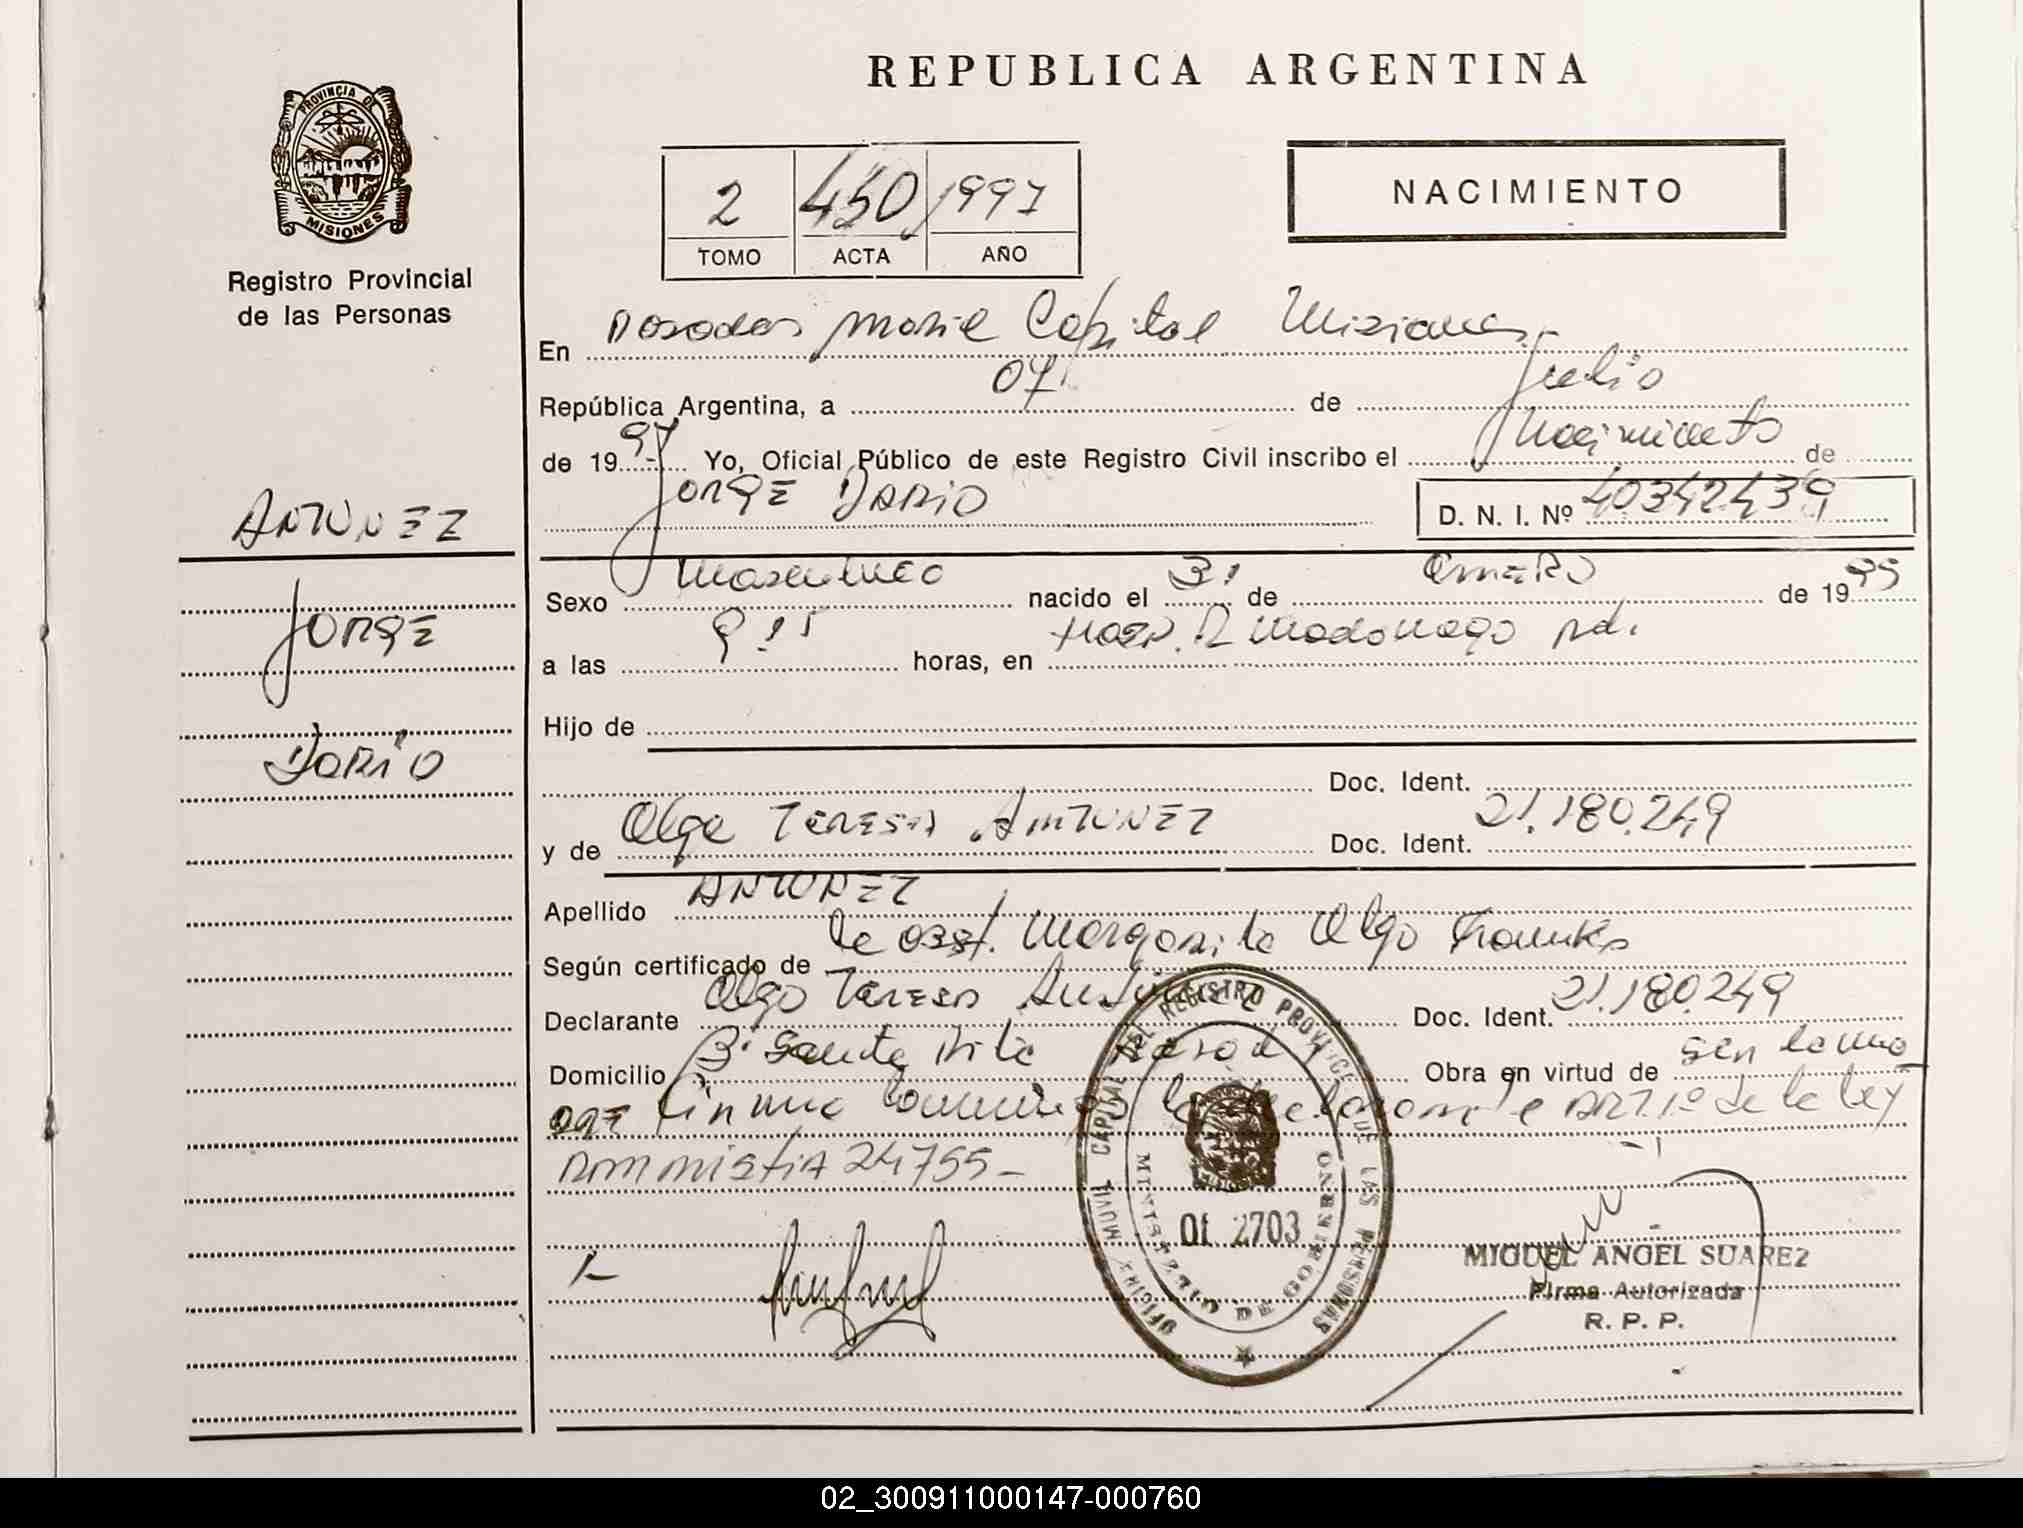 REPUBLICA ARGENTINA
PROVINCIA DE
MISIONES
Registro Provincial
de las Personas
2 450 1997
TOMO ACTA AÑO
NACIMIENTO
En Posadas Capital Misiones
República Argentina, a 07 de Julio
de 1997 Yo, Oficial Público de este Registro Civil inscribo el Nacimiento de
JORGE DARIO D. N. I. Nº 40342439
ANTUNEZ
JORGE
DARIO
Sexo Masculino nacido el 31 de ENERO de 1995
a las 9:15 horas, en Hosp. R Madariaga pds.
Hijo de
Doc. Ident.
y de Olga TERESA ANTUNEZ Doc. Ident. 21.180.249
Apellido ANTUNEZ
Según certificado de la obst. Margarita Olga
Declarante Olga TERESA Antunez Doc. Ident. 21.180.249
Domicilio Bº Santa Rita Posadas Obra en virtud de ser la
firma la declarante ART. 1º de la ley
AMNISTIA 24755-
OFICINA MOVIL CAPITAL DEL REGISTRO PROVINCIAL DE LAS PERSONAS
MINISTERIO DE GOBIERNO
Of 2703
MIGUEL ANGEL SUAREZ
Firma Autorizada
R. P. P.
02_300911000147-000760